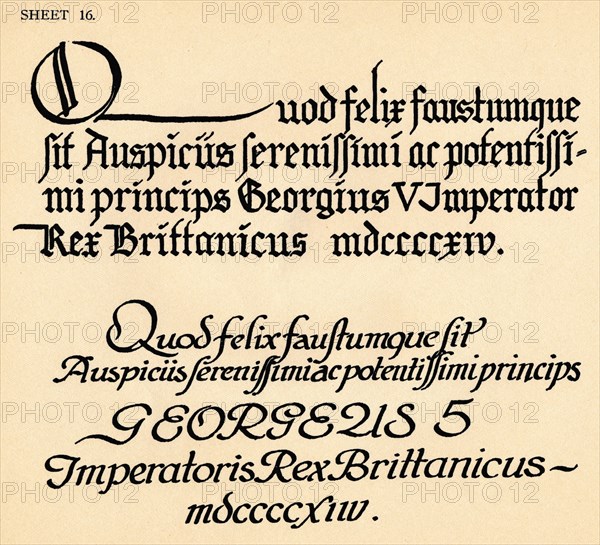 SHEET 16.
Quod felix fauſtumque
ſit Auspiciis ſereniſſimi ac potentiſſi-
mi princips Georgius V Imperator
Rex Brittanicus mdccccxiv.
Quod felix fauſtumque ſit
Auspiciis ſereniſſimi ac potentiſſimi princips
GEORGEUS 5
Imperatoris Rex Brittanicus~
mdccccxiv.